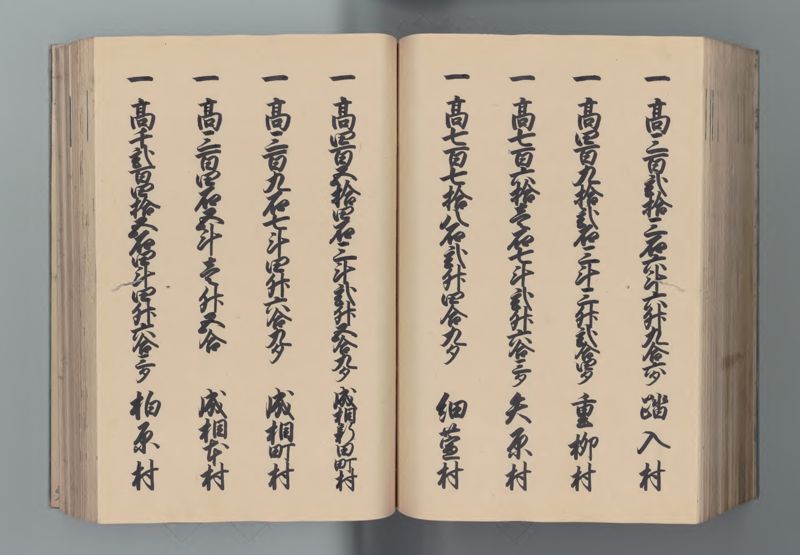 一 高三百弐拾三石六斗六升九合六夕 踏入村
一 高四百九拾弐石三斗三升弐合四夕 重柳村
一 高七百六拾壱石七斗弐升六合三夕 矢原村
一 高七百七拾八石弐升四合九夕 細萱村
一 高四百五拾四石三斗弐升五合九夕 成相新田町村
一 高三百九石七斗四升六合九夕 成相町村
一 高三百四石五斗壱升五合 成相本村
一 高千弐百四拾五石四斗四升六合三夕 柏原村